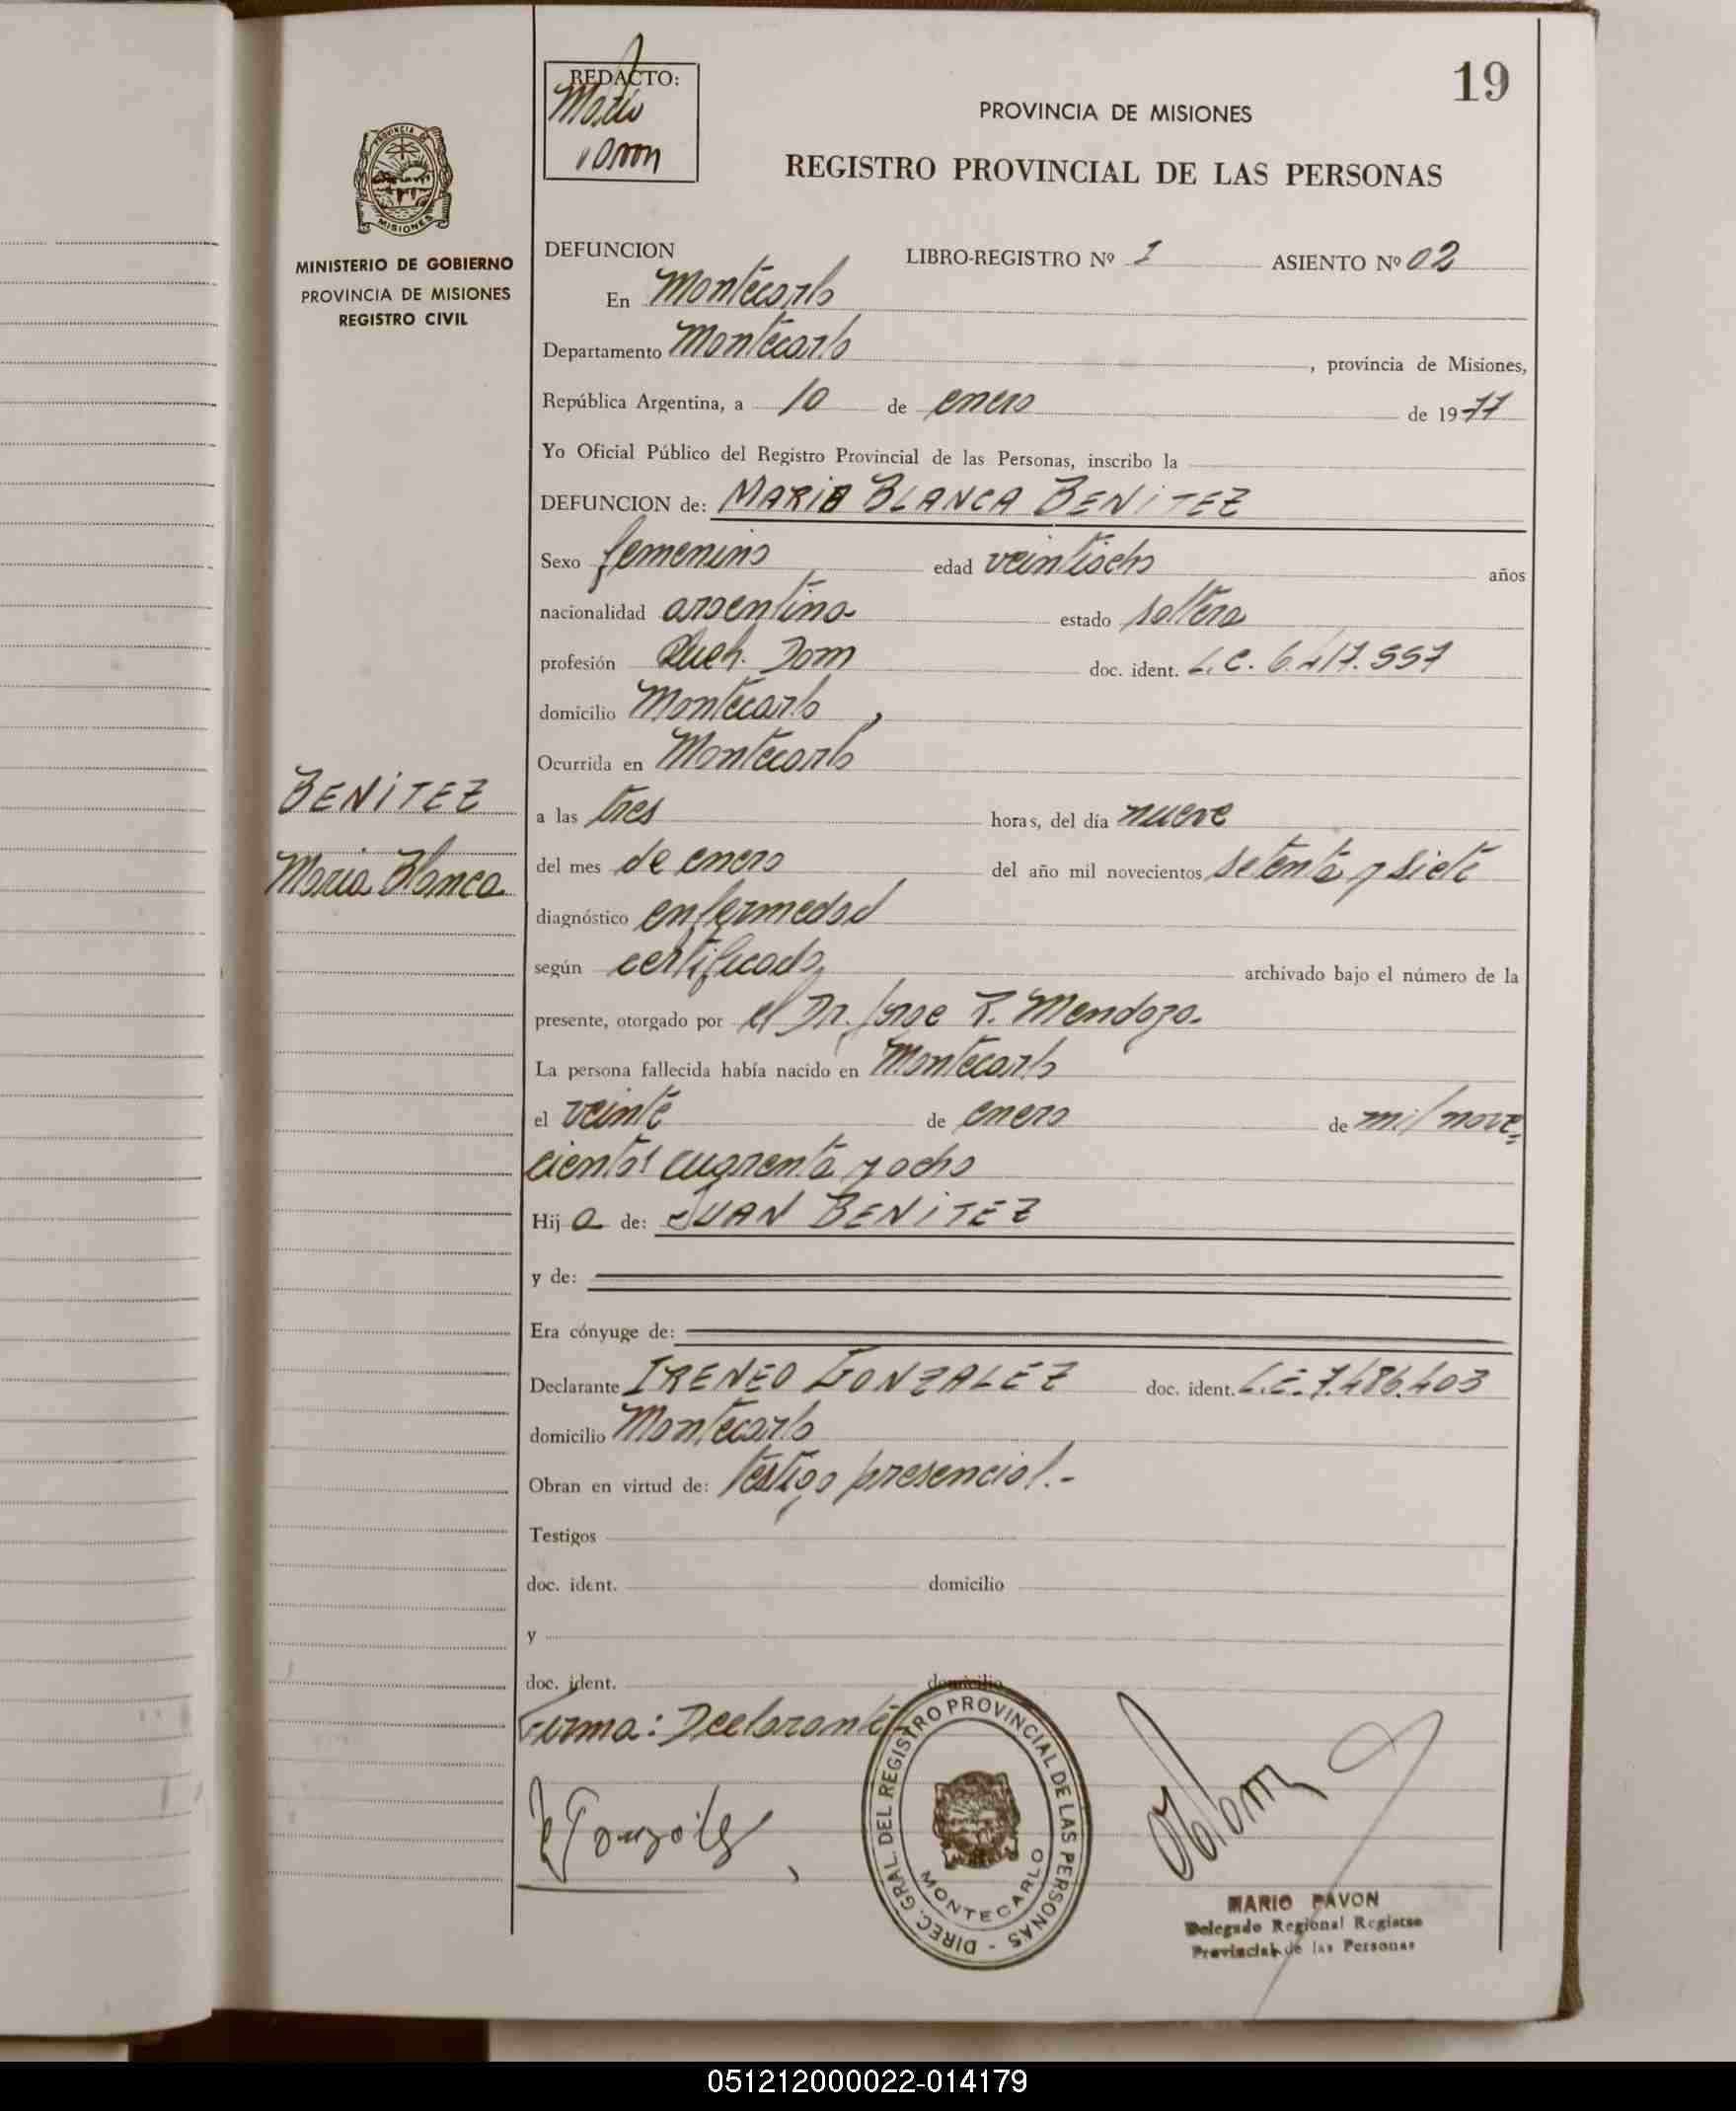 19
REDACTO:
Mario
Pavon
PROVINCIA DE MISIONES
REGISTRO PROVINCIAL DE LAS PERSONAS
PROVINCIA DE
MISIONES
MINISTERIO DE GOBIERNO
PROVINCIA DE MISIONES
REGISTRO CIVIL
DEFUNCION LIBRO-REGISTRO Nº 1 ASIENTO Nº 02
En Montecarlo
Departamento Montecarlo, provincia de Misiones,
República Argentina, a 10 de enero de 1977
Yo Oficial Público del Registro Provincial de las Personas, inscribo la
DEFUNCION de: MARIA BLANCA BENITEZ
Sexo femenino edad veintiocho años
nacionalidad argentina estado soltera
profesión Queh. Dom doc. ident. L.C. 6.417.557
domicilio Montecarlo,
Ocurrida en Montecarlo
BENITEZ
María Blanca
a las tres horas, del día nueve
del mes de enero del año mil novecientos setenta y siete
diagnóstico enfermedad
según certificado archivado bajo el número de la
presente, otorgado por el Dr. Jorge R. Mendoza.
La persona fallecida había nacido en Montecarlo
el veinte de enero de mil nove-
cientos cuarenta y ocho
Hij a de: JUAN BENITEZ
y de:
Era cónyuge de:
Declarante IRENEO GONZALEZ doc. ident. L.E. 7.486.403
domicilio Montecarlo
Obran en virtud de: testigo presencial.-
Testigos
doc. ident. domicilio
y
doc. ident. domicilio
Firma: Declarante
DIREC. GRAL. DEL REGISTRO PROVINCIAL DE LAS PERSONAS -
MONTECARLO
MARIO PAVON
Delegado Regional Registro
Provincial de las Personas
051212000022-014179